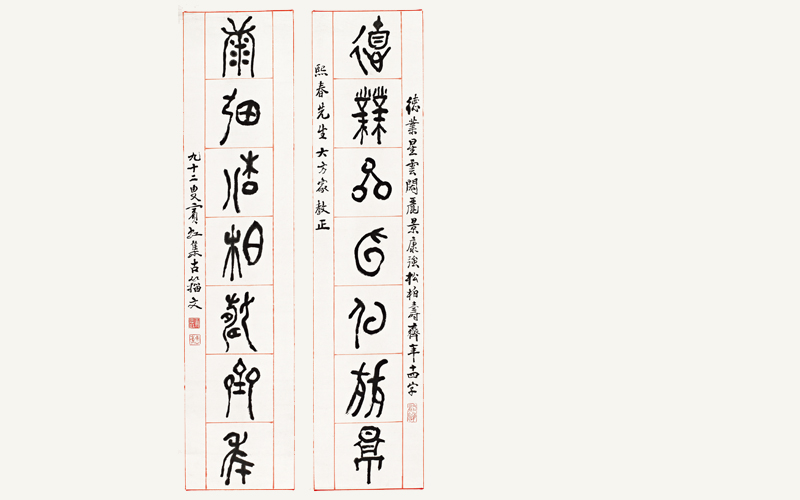 德業星雲開麗景康強松柏壽齊年十四字
德業星雲開麗景
熙春先生大方家教正
康強松柏壽齊年
九十二叟賓虹集古籀文